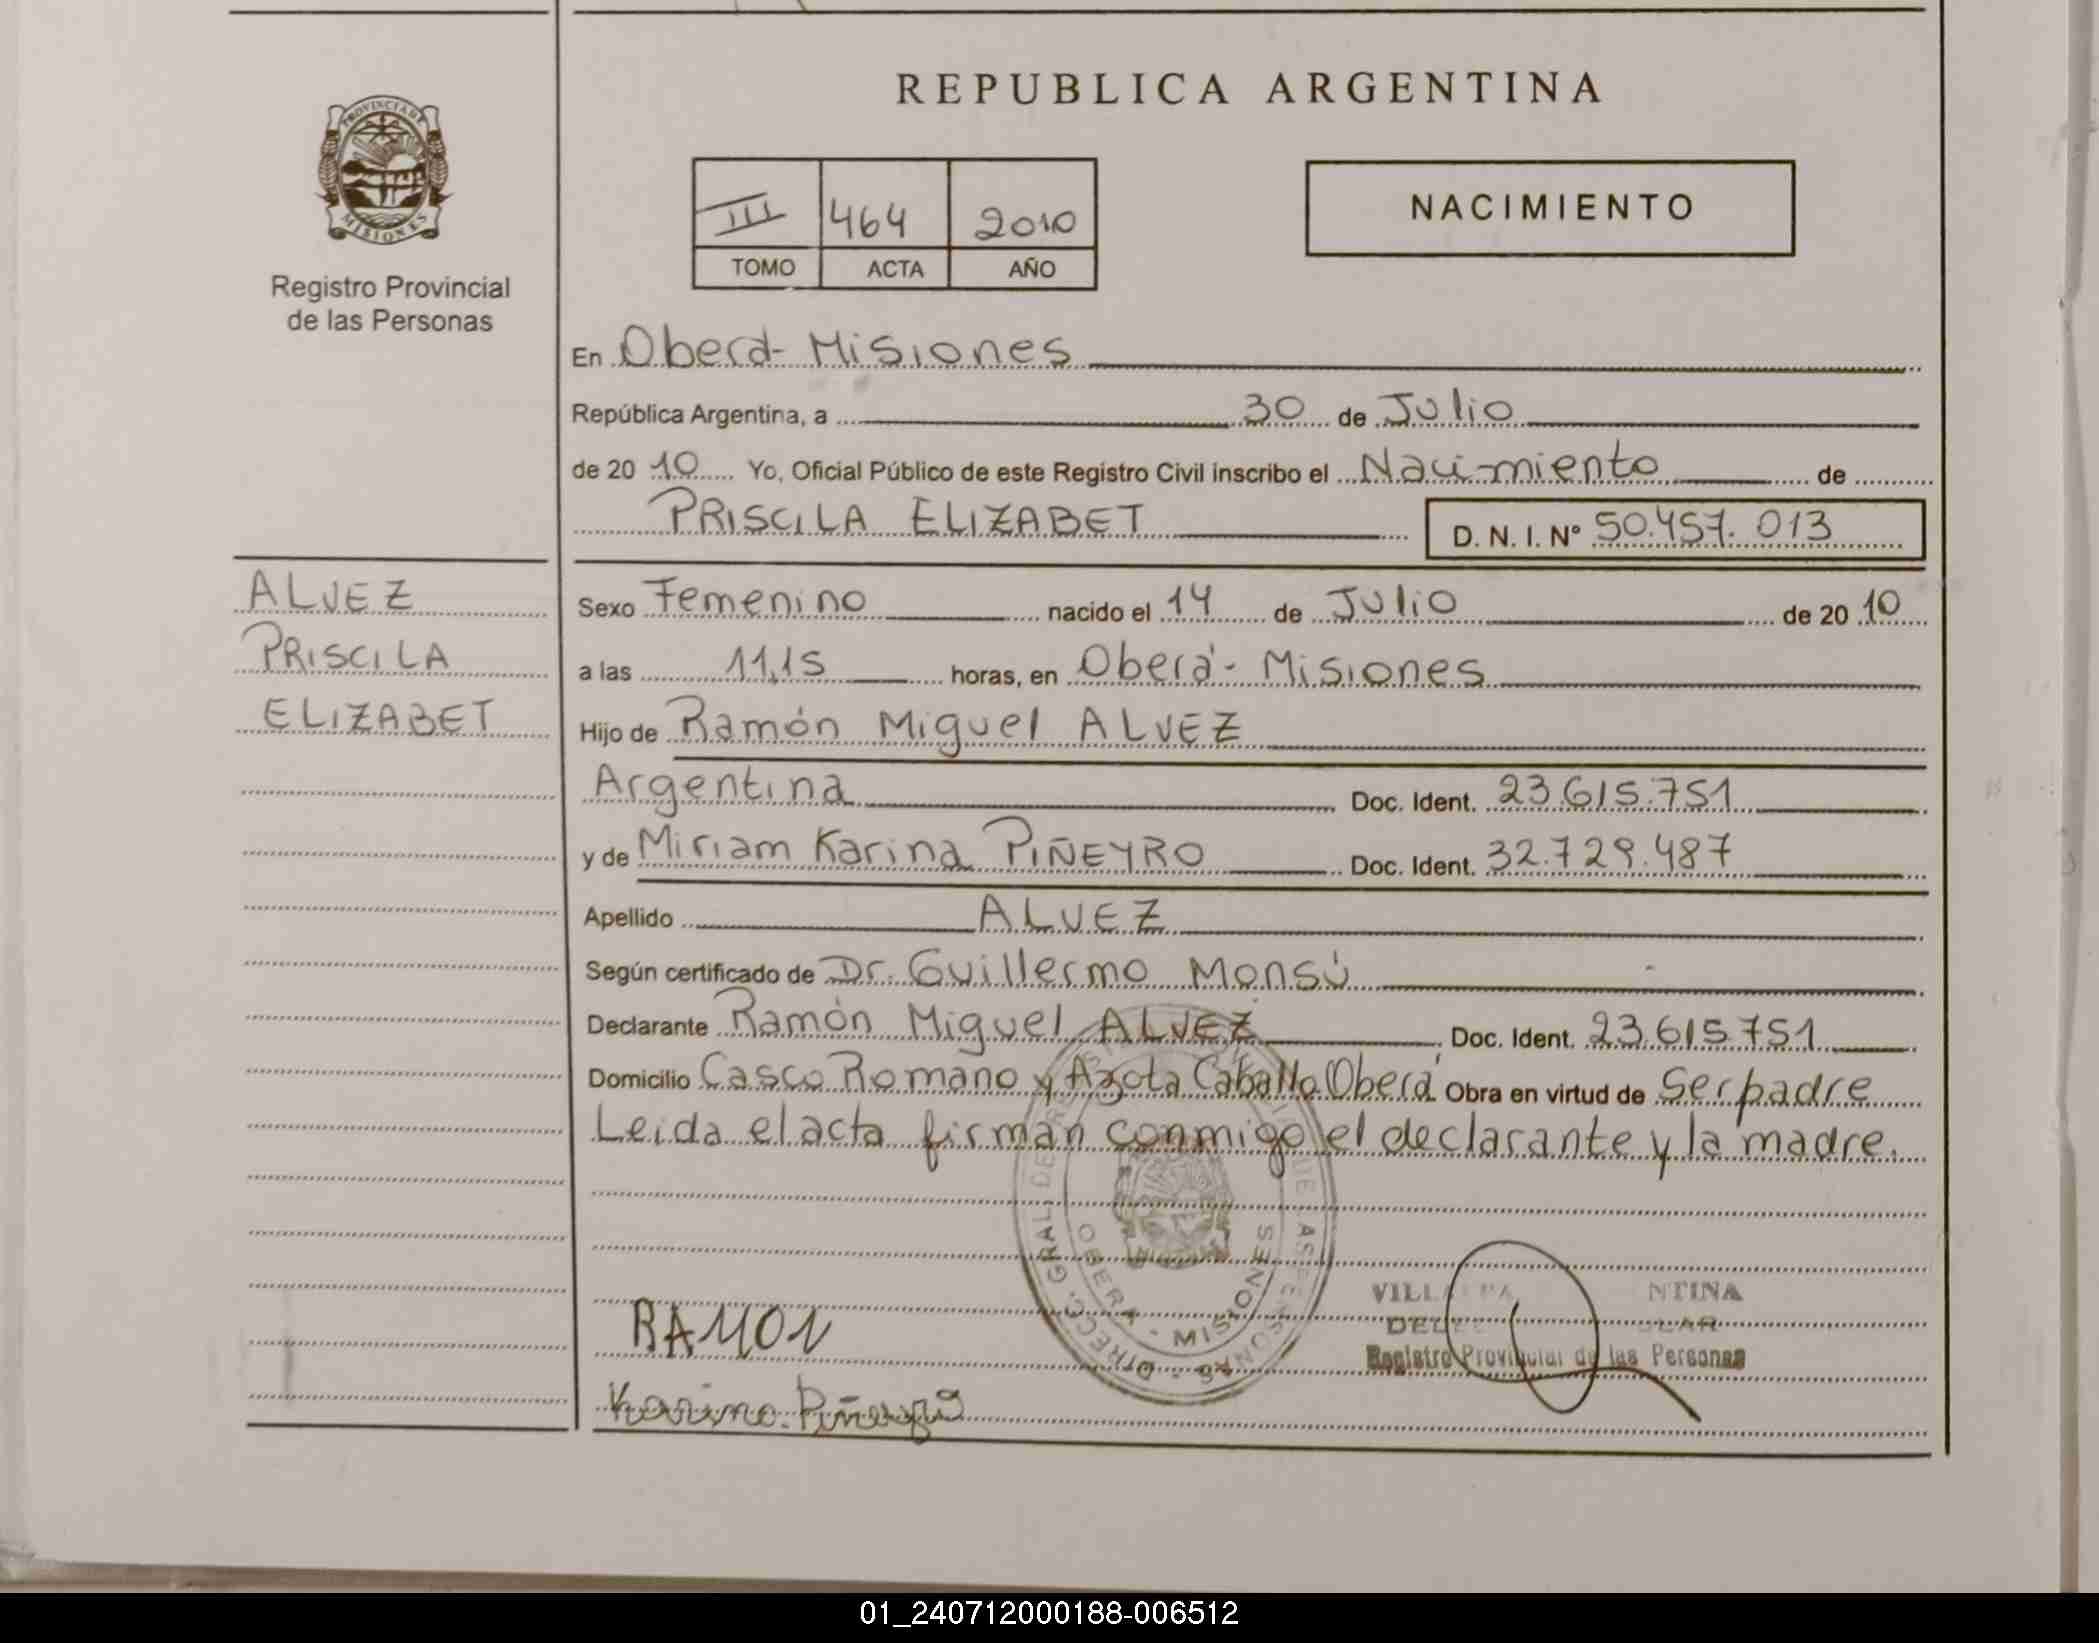 REPUBLICA ARGENTINA
PROVINCIA DE
MISIONES
Registro Provincial
de las Personas
III 464 2010
TOMO ACTA AÑO
NACIMIENTO
En Oberá - Misiones
República Argentina, a 30 de Julio
de 20 10 Yo, Oficial Público de este Registro Civil inscribo el Nacimiento de
PRISCILA ELIZABET D. N. I. Nº 50.457.013
ALVEZ
PRISCILA
ELIZABET
Sexo Femenino nacido el 14 de Julio de 20 10
a las 11,15 horas, en Oberá - Misiones
Hijo de Ramón Miguel ALVEZ
Argentina Doc. Ident. 23.615.751
y de Miriam Karina PIÑEYRO Doc. Ident. 32.729.487
Apellido ALVEZ
Según certificado de Dr. Guillermo Monsú
Declarante Ramón Miguel ALVEZ Doc. Ident. 23.615.751
Domicilio Casco Romano y Azota Caballo, Oberá Obra en virtud de Ser padre
Leida el acta firman conmigo el declarante y la madre.
OBERA - MISIONES
RAMON
Karina Piñeyro
Registro Provincial de las Personas
01_240712000188-006512